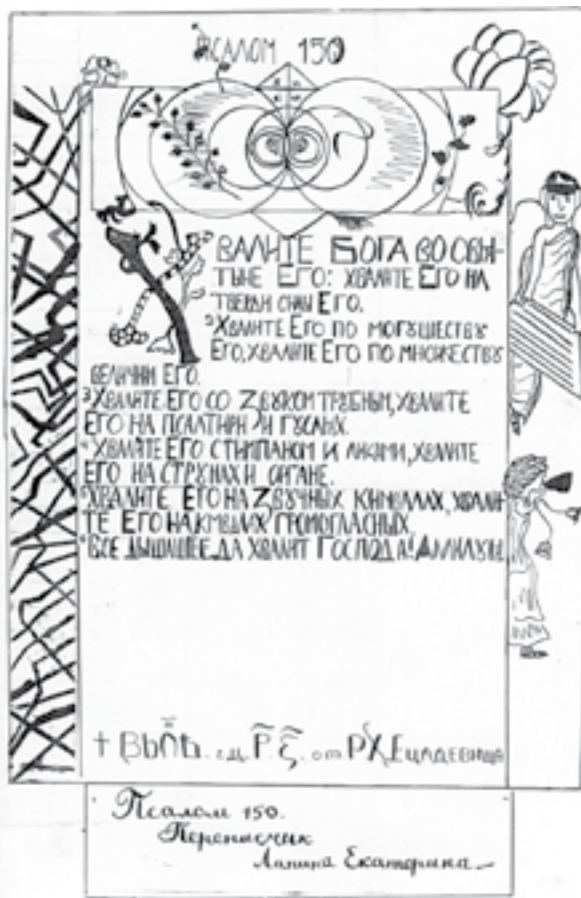 ПСАЛОМ 150
ХВАЛИТЕ БОГА ВО СВЯ-
ТЫНЕ ЕГО: ХВАЛИТЕ ЕГО НА
ТВЕРДИ СИЛЫ ЕГО.
2 ХВАЛИТЕ ЕГО ПО МОГУЩЕСТВУ
ЕГО, ХВАЛИТЕ ЕГО ПО МНОЖЕСТВУ
ВЕЛИЧИЯ ЕГО.
3 ХВАЛИТЕ ЕГО СО ZВУКОМ ТРУБНЫМ, ХВАЛИТЕ
ЕГО НА ПСАЛТИРИ И ГУСЛЯХ.
4 ХВАЛИТЕ ЕГО С ТИМПАНОМ И ЛИКАМИ, ХВАЛИТЕ
ЕГО НА СТРУНАХ И ОРГАНЕ.
5 ХВАЛИТЕ ЕГО НА ZВУЧНЫХ КИМВАЛАХ, ХВАЛИ-
ТЕ ЕГО НА ГРОМОГЛАСНЫХ.
6 ВСЕ ДЫШАЩЕЕ ДА ХВАЛИТ ГОСПОДА! АЛЛИЛУЙЯ.
от
Псалом 150.
Переписчик
Лапина Екатерина